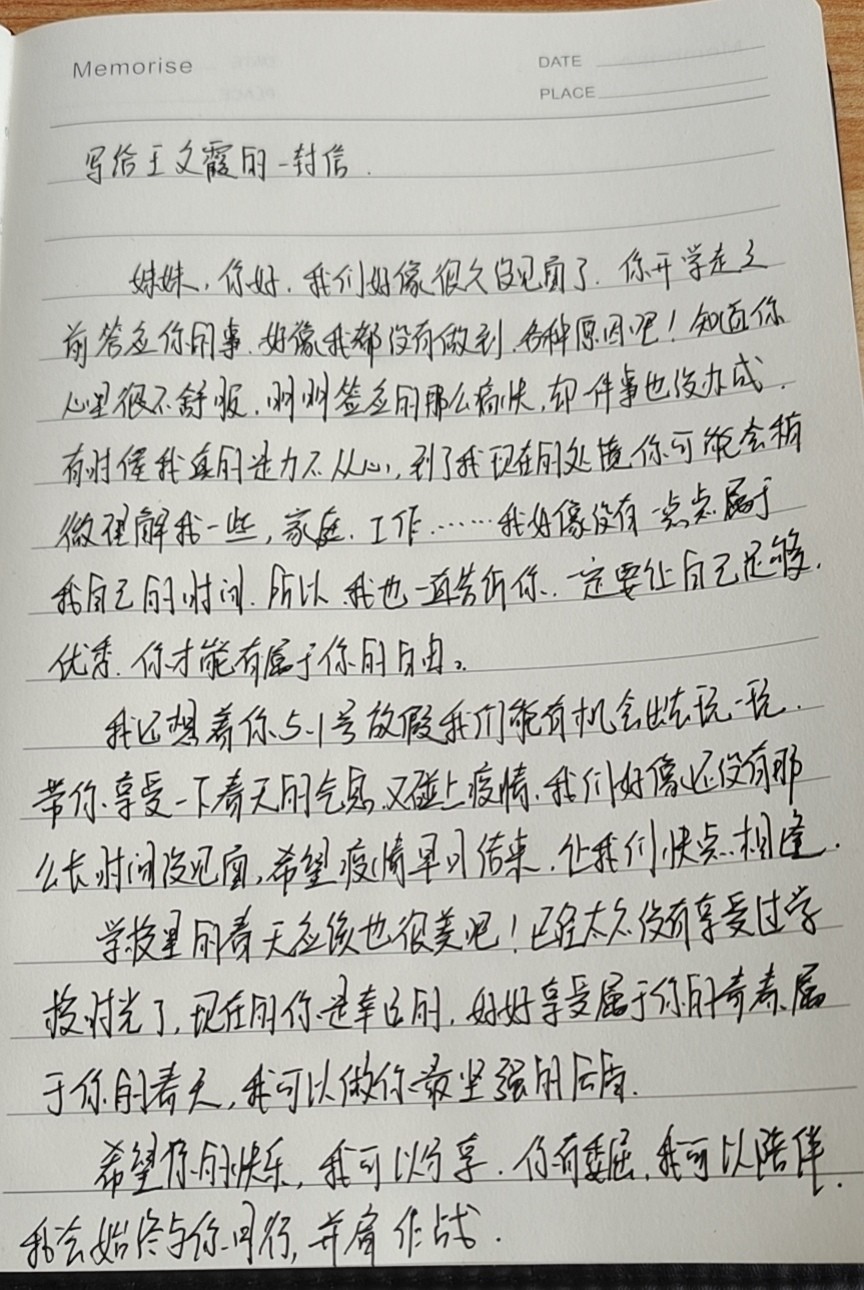 Memorise
DATE
PLACE
写给王文霞的一封信.
妹妹,你好,我们好像很久没见面了.你开学走之
前答应你的事.好像我都没有做到.各种原因吧!知道你
心里很不舒服.明明答应的那么痛快,却一件事也没办成.
有时候我真的是力不从心,到了我现在的处境,你可能会稍
微理解我一些,家庭.工作……我好像没有一点点属于
我自己的时间.所以.我也一直告诉你.一定要让自己足够.
优秀.你才能有属于你的自由。
我还想着你5.1号放假我们能有机会出去玩一玩.
带你享受一下春天的气息.又碰上疫情.我们好像还没有那
么长时间没见面,希望疫情早日结束.让我们快点相逢.
学校里的春天应该也很美吧!已经太久没有享受过学
校时光了,现在的你是幸运的.好好享受属于你的青春.属
于你的春天,我可以做你最坚强的后盾.
希望你的快乐,我可以分享.你有委屈,我可以陪伴.
我会始终与你同行,并肩作战.